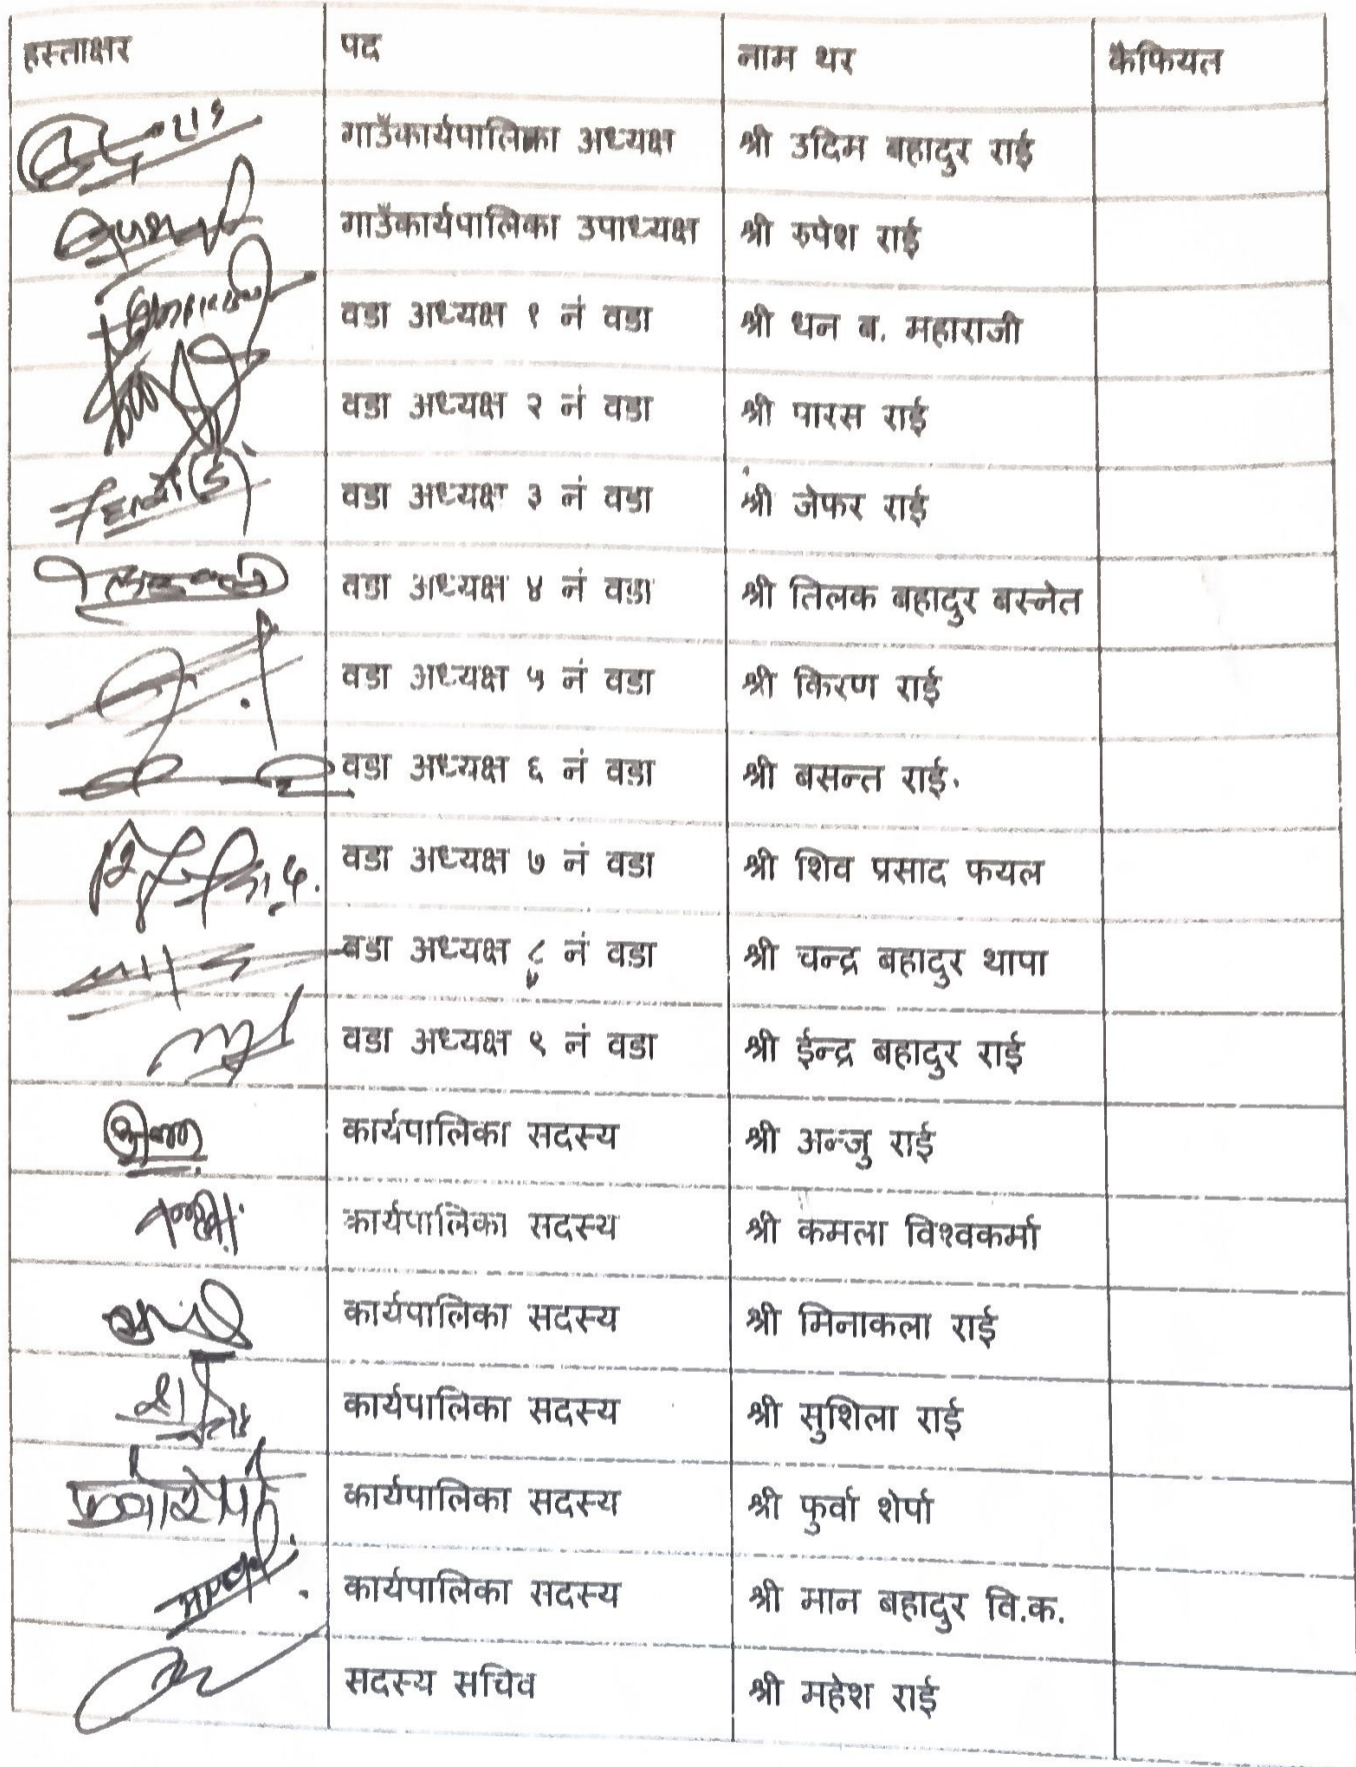 हस्ताक्षर पद नाम थर कैफियत
गाउँकार्यपालिका अध्यक्ष श्री उदिम बहादुर राई
गाउँकार्यपालिका उपाध्यक्ष श्री रुपेश राई
वडा अध्यक्ष १ नं वडा श्री धन ब. महाराजी
वडा अध्यक्ष २ नं वडा श्री पारस राई
वडा अध्यक्ष ३ नं वडा श्री जेफर राई
वडा अध्यक्ष ४ नं वडा श्री तिलक बहादुर बस्नेत
वडा अध्यक्ष ५ नं वडा श्री किरण राई
वडा अध्यक्ष ६ नं वडा श्री बसन्त राई.
वडा अध्यक्ष ७ नं वडा श्री शिव प्रसाद फयल
वडा अध्यक्ष ८ नं वडा श्री चन्द्र बहादुर थापा
वडा अध्यक्ष ९ नं वडा श्री ईन्द्र बहादुर राई
कार्यपालिका सदस्य श्री अन्जु राई
कार्यपालिका सदस्य श्री कमला विश्वकर्मा
कार्यपालिका सदस्य श्री मिनाकला राई
कार्यपालिका सदस्य श्री सुशिला राई
कार्यपालिका सदस्य श्री फुर्वा शेर्पा
कार्यपालिका सदस्य श्री मान बहादुर वि.क.
सदस्य सचिव श्री महेश राई